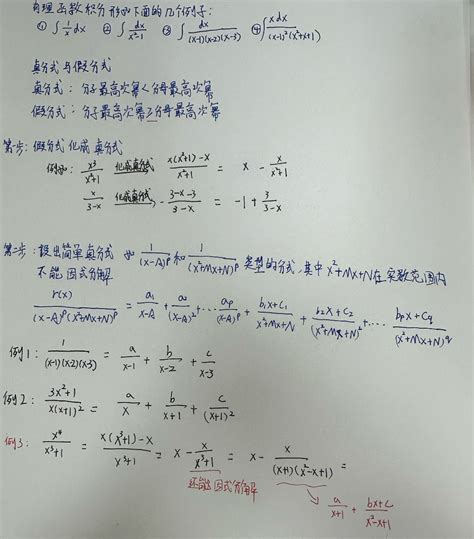 有理函数积分 形如下面的几个例子:
① ∫ 1/x dx ② ∫ dx/(x²-1) ③ ∫ dx/((x-1)(x-2)(x-3)) ④ ∫ xdx/((x-1)²(x²+x+1))
真分式与假分式
真分式: 分子最高次幂<分母最高次幂
假分式: 分子最高次幂≥分母最高次幂
第一步: 假分式化成真分式
例如: x³/(x²+1) 化成真分式 (x(x²+1)-x)/(x²+1) = x - x/(x²+1)
x/(3-x) 化成真分式 - (3-x-3)/(3-x) = -1 + 3/(3-x)
第二步: 提出简单真分式 如 1/(x-A)^p 和 1/(x²+Mx+N)^p 类型的分式, 其中 x²+Mx+N 在实数范围内
不能因式分解
r(x)/((x-A)^p(x²+Mx+N)^p) = a₁/(x-A) + a₂/(x-A)² + ... ap/(x-A)^p + (b₁x+C₁)/(x²+Mx+N) + (b₂x+C₂)/(x²+Mx+N)² + ... (bpx+Cq)/(x²+Mx+N)^q
例1: 1/((x-1)(x-2)(x-3)) = a/(x-1) + b/(x-2) + c/(x-3)
例2: (3x²+1)/(x(x+1)²) = a/x + b/(x+1) + c/(x+1)²
例3: x⁴/(x³+1) = (x(x³+1)-x)/(x³+1) = x - x/(x³+1) = x - x/((x+1)(x²-x+1)) =
还能因式分解
a/(x+1) + (bx+c)/(x²-x+1)